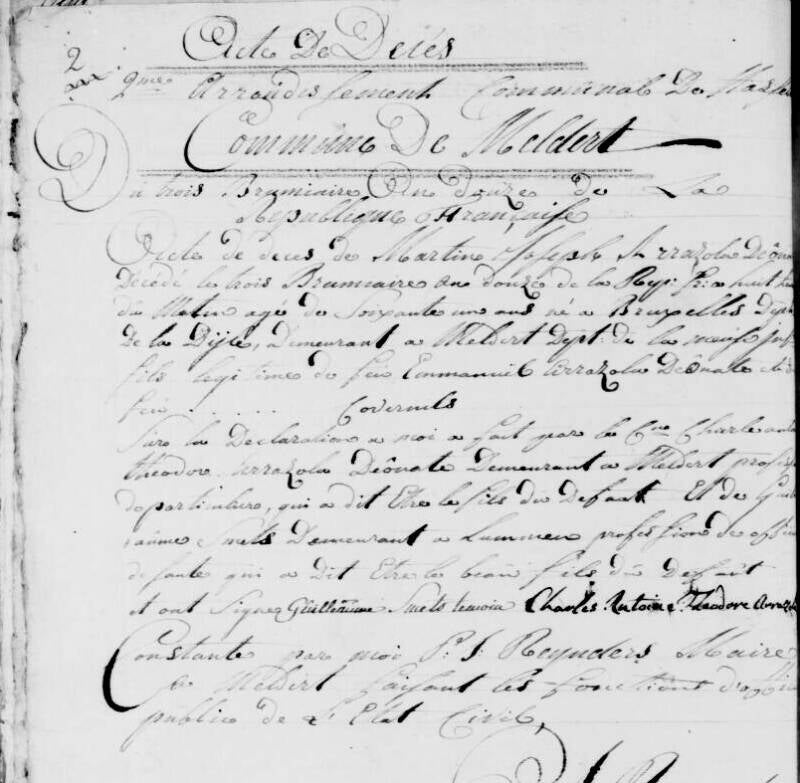 Acte De Decés
2
2me Arrondissement Communal De Hass
Commune De Meldert
Du trois Brumiaire An douze de La
Republique Française
Acte de deces de Martin Joseph Arrazola Deôna
Décedé le trois Brumiaire an douze de la Rep: Fr: a huit h
du Matin agé de Soixante un ans né a Bruxelles Dept
De la Dijle, demeurant a Meldert Dept: de la meuse Inf
fils legitime de feu Emmanuel Arrazola Deônate et d
feu . . . . . . Covernils
Sur la Declaration a moi a fait par le Cen Charle anto
theodor Arrazola Deônate Demeurant a Meldert profess
de particulere, qui a dit Etre le fils du Defunt Et de Guil
laume Smets Demeurant a Lummen profession de offic
de Sante qui a Dit Etre le beau fils du Defunt
et ont Signe Guillaume Smets temoin Charles Antoine Theodore Arrazo
Constante par moi P: J: Reynders Maire
de Meldert faisant les fonctions d'offici
public de L'Etat Civil,